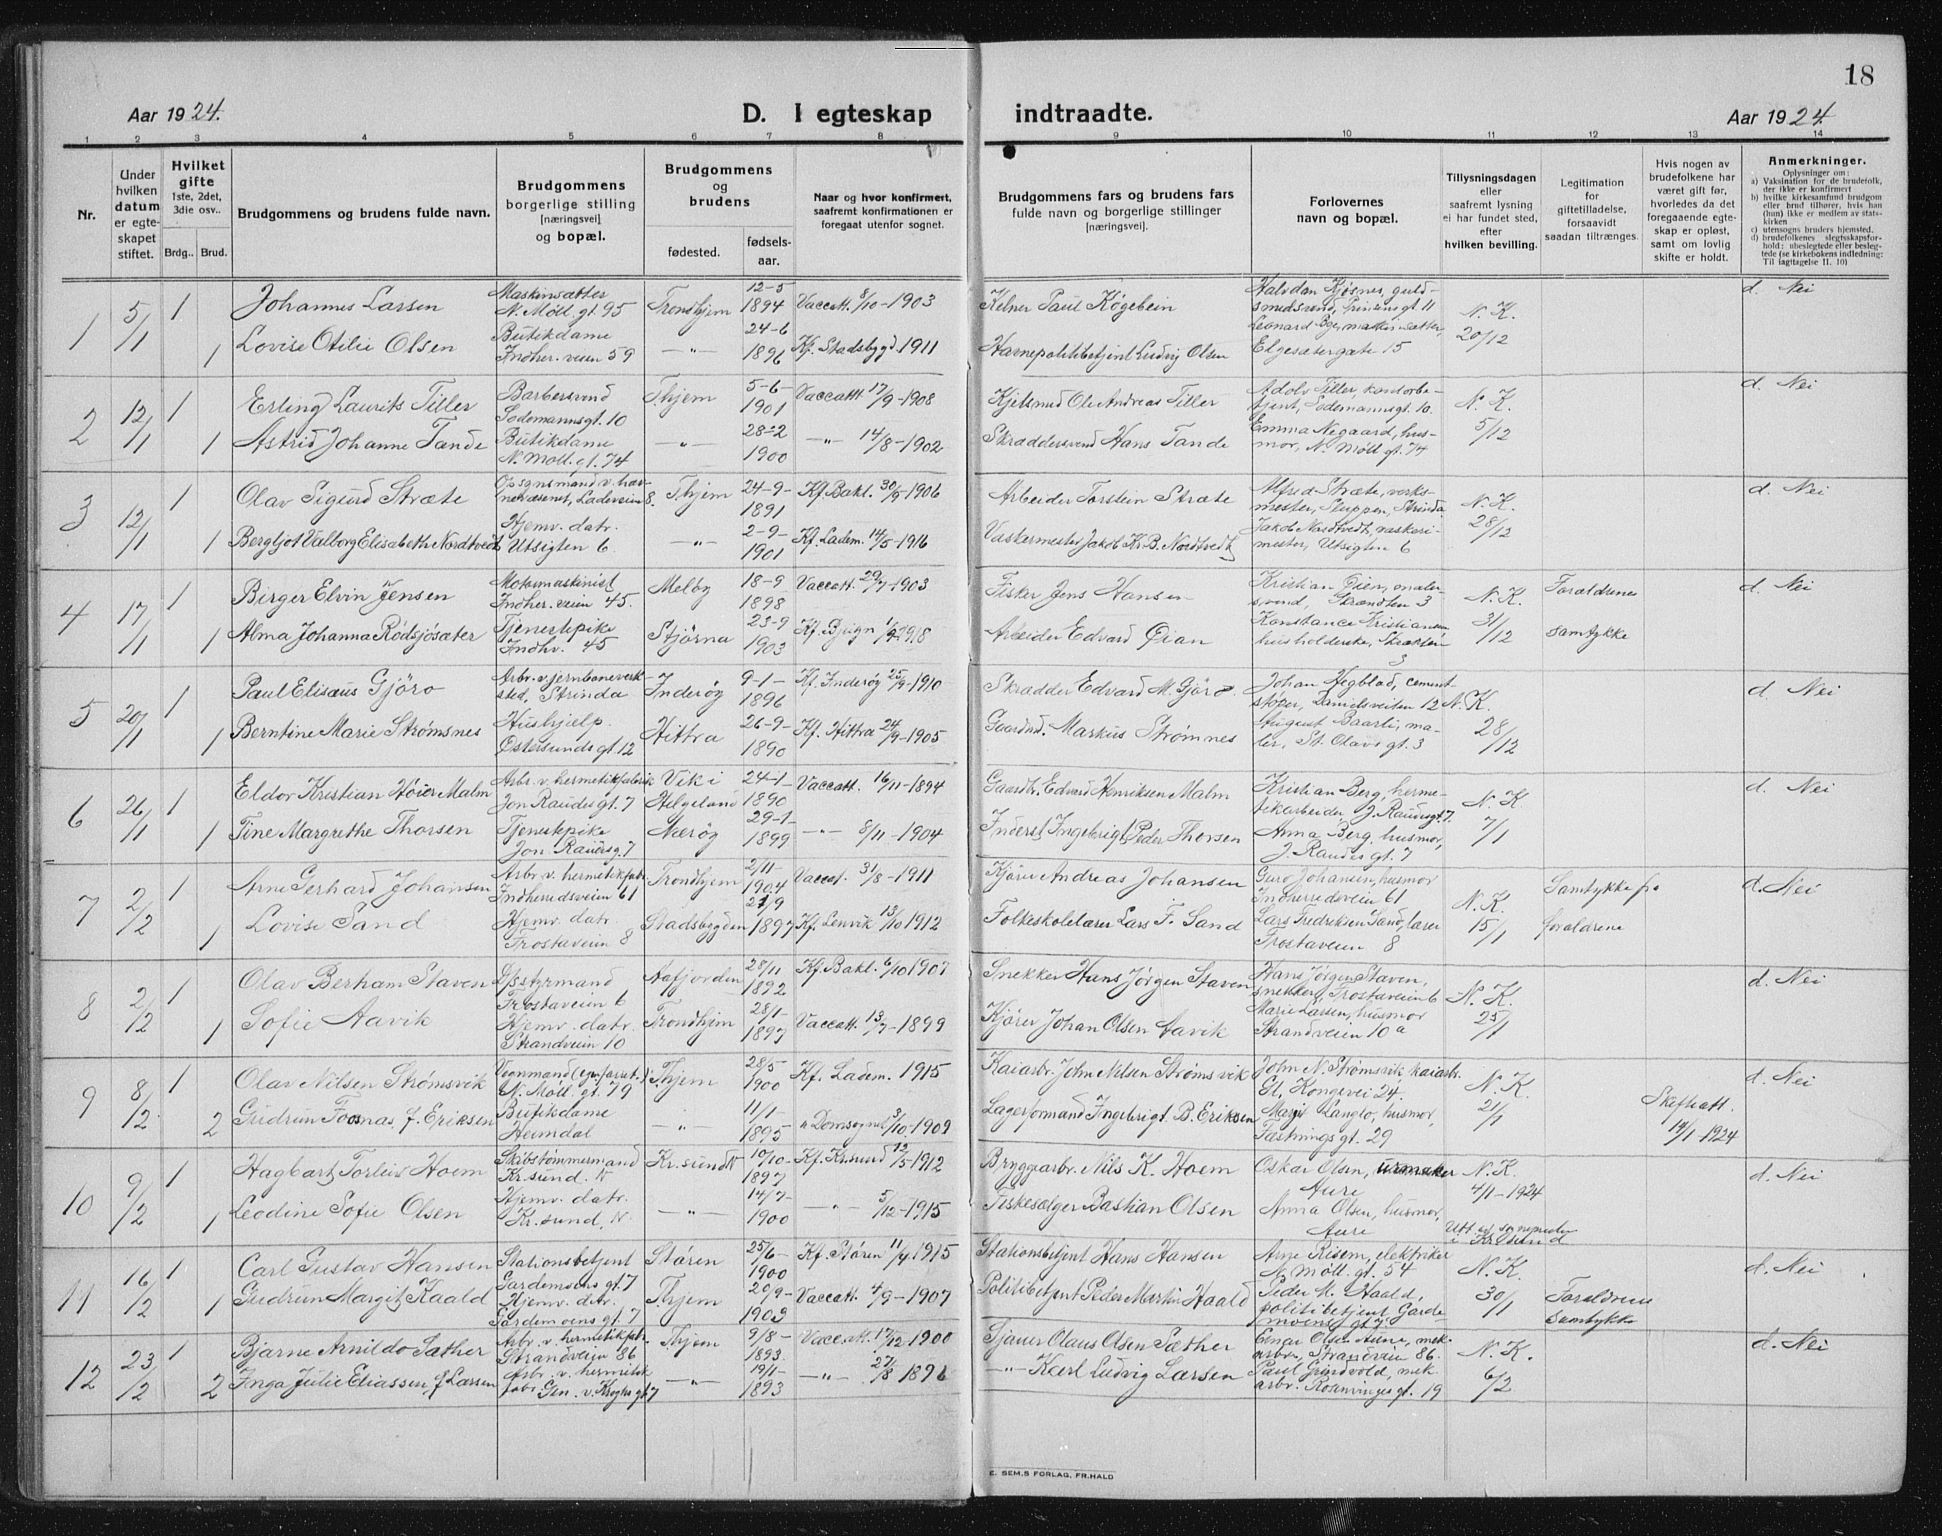 18
Aar 1924.
D. I egteskap
indtraadte.
Aar 1924.
1 2 3 4 5 6 7 8 9 10 11 12 13 14
Nr.
Under hvilken datum er egteskapet stiftet.
Hvilket gifte 1ste, 2det, 3die osv..
Brdg.. Brud.
Brudgommens og brudens fulde navn.
Brudgommens borgerlige stilling [næringsvei] og bopæl.
Brudgommens og brudens
fødested.
fødsels-aar.
Naar og hvor konfirmert, saafremt konfirmationen er foregaat utenfor sognet.
Brudgommens fars og brudens fars fulde navn og borgerlige stillinger [næringsvei].
Forlovernes navn og bopæl.
Tillysningsdagen eller saafremt lysning ei har fundet sted, efter hvilken bevilling.
Legitimation for giftetilladelse, forsaavidt saadan tiltrænges.
Hvis nogen av brudefolkene har været gift før, hvorledes da det foregaaende egteskap er opløst, samt om lovlig skifte er holdt.
Anmerkninger.
Oplysninger om:
a) Vaksination for de brudefolk, der ikke er konfirmert
b) hvilke kirkesamfund brudgom eller brud tilhører, hvis han (hun) ikke er medlem av statskirken
c) utensogns bruders hjemsted.
d) brudefolkenes slegtsskapsforhold: ubeslegtede eller beslegtede (se kirkebokens indledning: Til Iagttagelse II. 10)
1 5/1 1 Johannes Larsen Maskinsætter N. Möll. gt. 95 Trondhjem 12-5 1894 Vaccatt. 8/10-1903 Kelner Paul Køgebein Halvdan Kjøsnes, guldsmedsvend, Prinsens gt 11 N. K. 20/12 d. Nei
1 Lovise Otilie Olsen Butikdame Indher. veien 59 —"— 24-6 1896 Kf. Stadsbygd 1911 Havnepolitibetjent Ludvig Olsen Leonard Boe, maskinsætter, Elgesætergate 15
2 12/1 1 Erling Laurits Tiller Barbersvend Sodemannsgt. 10 T.hjem 5-6- 1901 Vaccatt 17/9-1908 Kjelsmed Ole Andreas Tiller Adolv Tiller, kontorbetjent, Sodemannsgt. 10. N. K. 5/12 d. Nei
1 Astrid Johanne Tande Butikdame N. Möll. gt. 74 —"— 28-2 1900 —"— 14/8-1902 Skræddersvend Hans Tande Emma Negaard, husmor, N. Möll gt. 74
3 12/1 1 Olav Sigurd Stræte Opsynsmand v. havnevæsenet, Ladeveien 8. T.hjem 24-9- 1891 Kf. Bakl. 30/9-1906 Arbeider Torstein Stræte Alfred Stræte, verksmester, Sluppen, Strinda N. K. 28/12 d. Nei
1 Bergljot Valborg Elisabeth Nordtvedt Hjemv. datr. Utsigten 6 —"— 2-9- 1901 Kf. Ladem. 14/5-1916 Vaskermester Jakob Kr. B. Nordtvedt Jakob Nordtvedt, vaskerimester, Utsigten 6
4 17/1 1 Birger Elvin Jensen Motormaskinist Indher. veien 45. Melby 18-9 1898 Vaccatt. 29/7-1903 Fisker Jens Hansen Kristian Øien, malersvend, Strandten 3 N. K. 31/12 Foraldrenes samtykke d. Nei
1 Alma Johanna Rödsjösæter Tjenestepike Indhv. 45 Stjörna 23-9 1903 Kf. Bjugn 1/9-1918 Arbeider Edvard Øian Konstance Kristiansen husholderske,
5 20/1 1 Paul Elisæus Gjöro Arbr. v. jernbaneverksted, Strinda Inderøy 9-1- 1896 Kf. Inderöy 25/9-1910 Skrædder Edvard M. Gjöro Johan Hegblad, cementstøper, Danielsveiten 12 N. K. 28/12 d. Nei
1 Berntine Marie Strømsnes Hushjelp. Østersundsgt. 12 Hittra 26-9- 1890 Kf. Hittra 24/9-1905 Gaardmd. Markus Strømnes August Baarli, maler, St. Olavs gt. 3
6 26/1 1 Eldor Kristian Höier Malm Arbr. v. hermetikfabrik Jon Raudes gt. 7 Vik i Helgeland 24-1- 1890 Vaccatt. 16/11-1894 Gaardbr. Edvard Henriksen Malm Kristian Berg, hermetikarbeider, J. Raudesgt. 7. N. K. 7/1 d. Nei
1 Tine Margrethe Thorsen Tjenestepike Jon Raudesg. 7 Nærøy 29-1- 1899 —"— 8/11-1904 Inderst Ingebrigt Peder Thorsen Anna Berg, husmor, J. Raudes gt. 7
7 2/2 1 Arne Gerhard Johansen Arbr v. hermetikfabr. Indherredsveien 61 Trondhjem 2/11- 1904 Vaccat. 31/8-1911 Kjörer Andreas Johansen Guro Johansen, husmor Indherredsveien 61 N. K. 15/1 Samtykke fra foraldrene d. Nei
1 Lovise Sand Hjemv. datr. Frostaveien 8 Stadsbygden 21/9 1897 Kf. Lenvik 13/10-1912 Folkeskolelærer Lars F. Sand Lars Fredriksen Sand, lærer Frostaveien 8
8 2/2 1 Olav Berham Staven Frostaveien 6 Aafjorden 28/11 1892 Kf. Bakl. 6/10-1907 Snekker Hans Jörgen Staven Hans Jörgen Staven, snekker, Frostaveien 6 N. K. 25/1 d. Nei
1 Sofie Aavik Hjemv. datr. Strandveien 10 Trondhjem 28/1- 1897 Vaccatt. 13/7-1899 Kjörer Johan Olsen Aavik Marie Larsen, husmor Strandveien 10 a
9 8/2 1 Olav Nilsen Strømsvik N. Möll. gt. 79 T.hjem 28/5 1900 Kf. Ladem. 1915 Kaiarbr. John Nilsen Strømsvik John N. Strømsvik, kaiarbr. Gl. Kongevei 24. N. K. 21/1 d. Nei
2 Gudrun Fosnas f. Eriksen Butikdame Heimdal —"— 11/1- 1895 " Domsognet 3/10-1909 Lagerformand Ingebrigt B. Eriksen Margit Langlo, husmor, Fæstningsgt. 29 Skifteatt. 14/1-1924
10 9/2 1 Hagbart Torleiv Hoem Skibstømmermand Kr. sund. N Kr. sund N 10/10- 1897 Kf. Kr.sund 12/5-1912 Bryggearbr. Nils K. Hoem Oskar Olsen, urmaker Aure N. K. 4/1-1924 d. Nei
1 Leodine Sofie Olsen Hjemv. datr. Kr. sund, N —"— 14/7- 1900 —"— 5/12-1915 Fiskesælger Bastian Olsen Anna Olsen, husmor, Aure
11 16/2 1 Carl Gustav Hansen Stationsbetjent Gardemoens gt. 7 Støren 25/6- 1900 Kf. Støren 11/4 1915 Stationsbetjent Hans Hansen Arne Risem, elektriker N. Möll. gt. 54 N. K. 30/1 Foraldrenes Samtykke d. Nei
1 Gudrun Margit Haald Hjemv. datr. Gardemoens gt. 7 T.hjem 20/9- 1903 Vaccatt. 4/9-1907 Politibetjent Peder Martin Haald Peder M. Haald, politibetjent Gardemoens gt 7
12 23/2 1 Bjarne Arnildo Sæther Arbr. v. hermetikfabr. Strandveien 86 T.hjem 9/8- 1893. Vaccatt. 17/12 1900 Sjauer Olaus Olsen Sæther Einar Olsen Aune, mek. arbr. Strandveien 86. N. K. 6/2 d. Nei
2 Inga Julie Eliassen f Larsen Arbr. v. hermetikfabr. Gen. v. Kroghs gt 7 —"— 19/1- 1893 —"— 27/8 1896 —"— Karl Ludvig Larsen Paul Grindvold, mek. arbr. Rosenvinges gt. 19
E. SEM,S FORLAG, FR.HALD